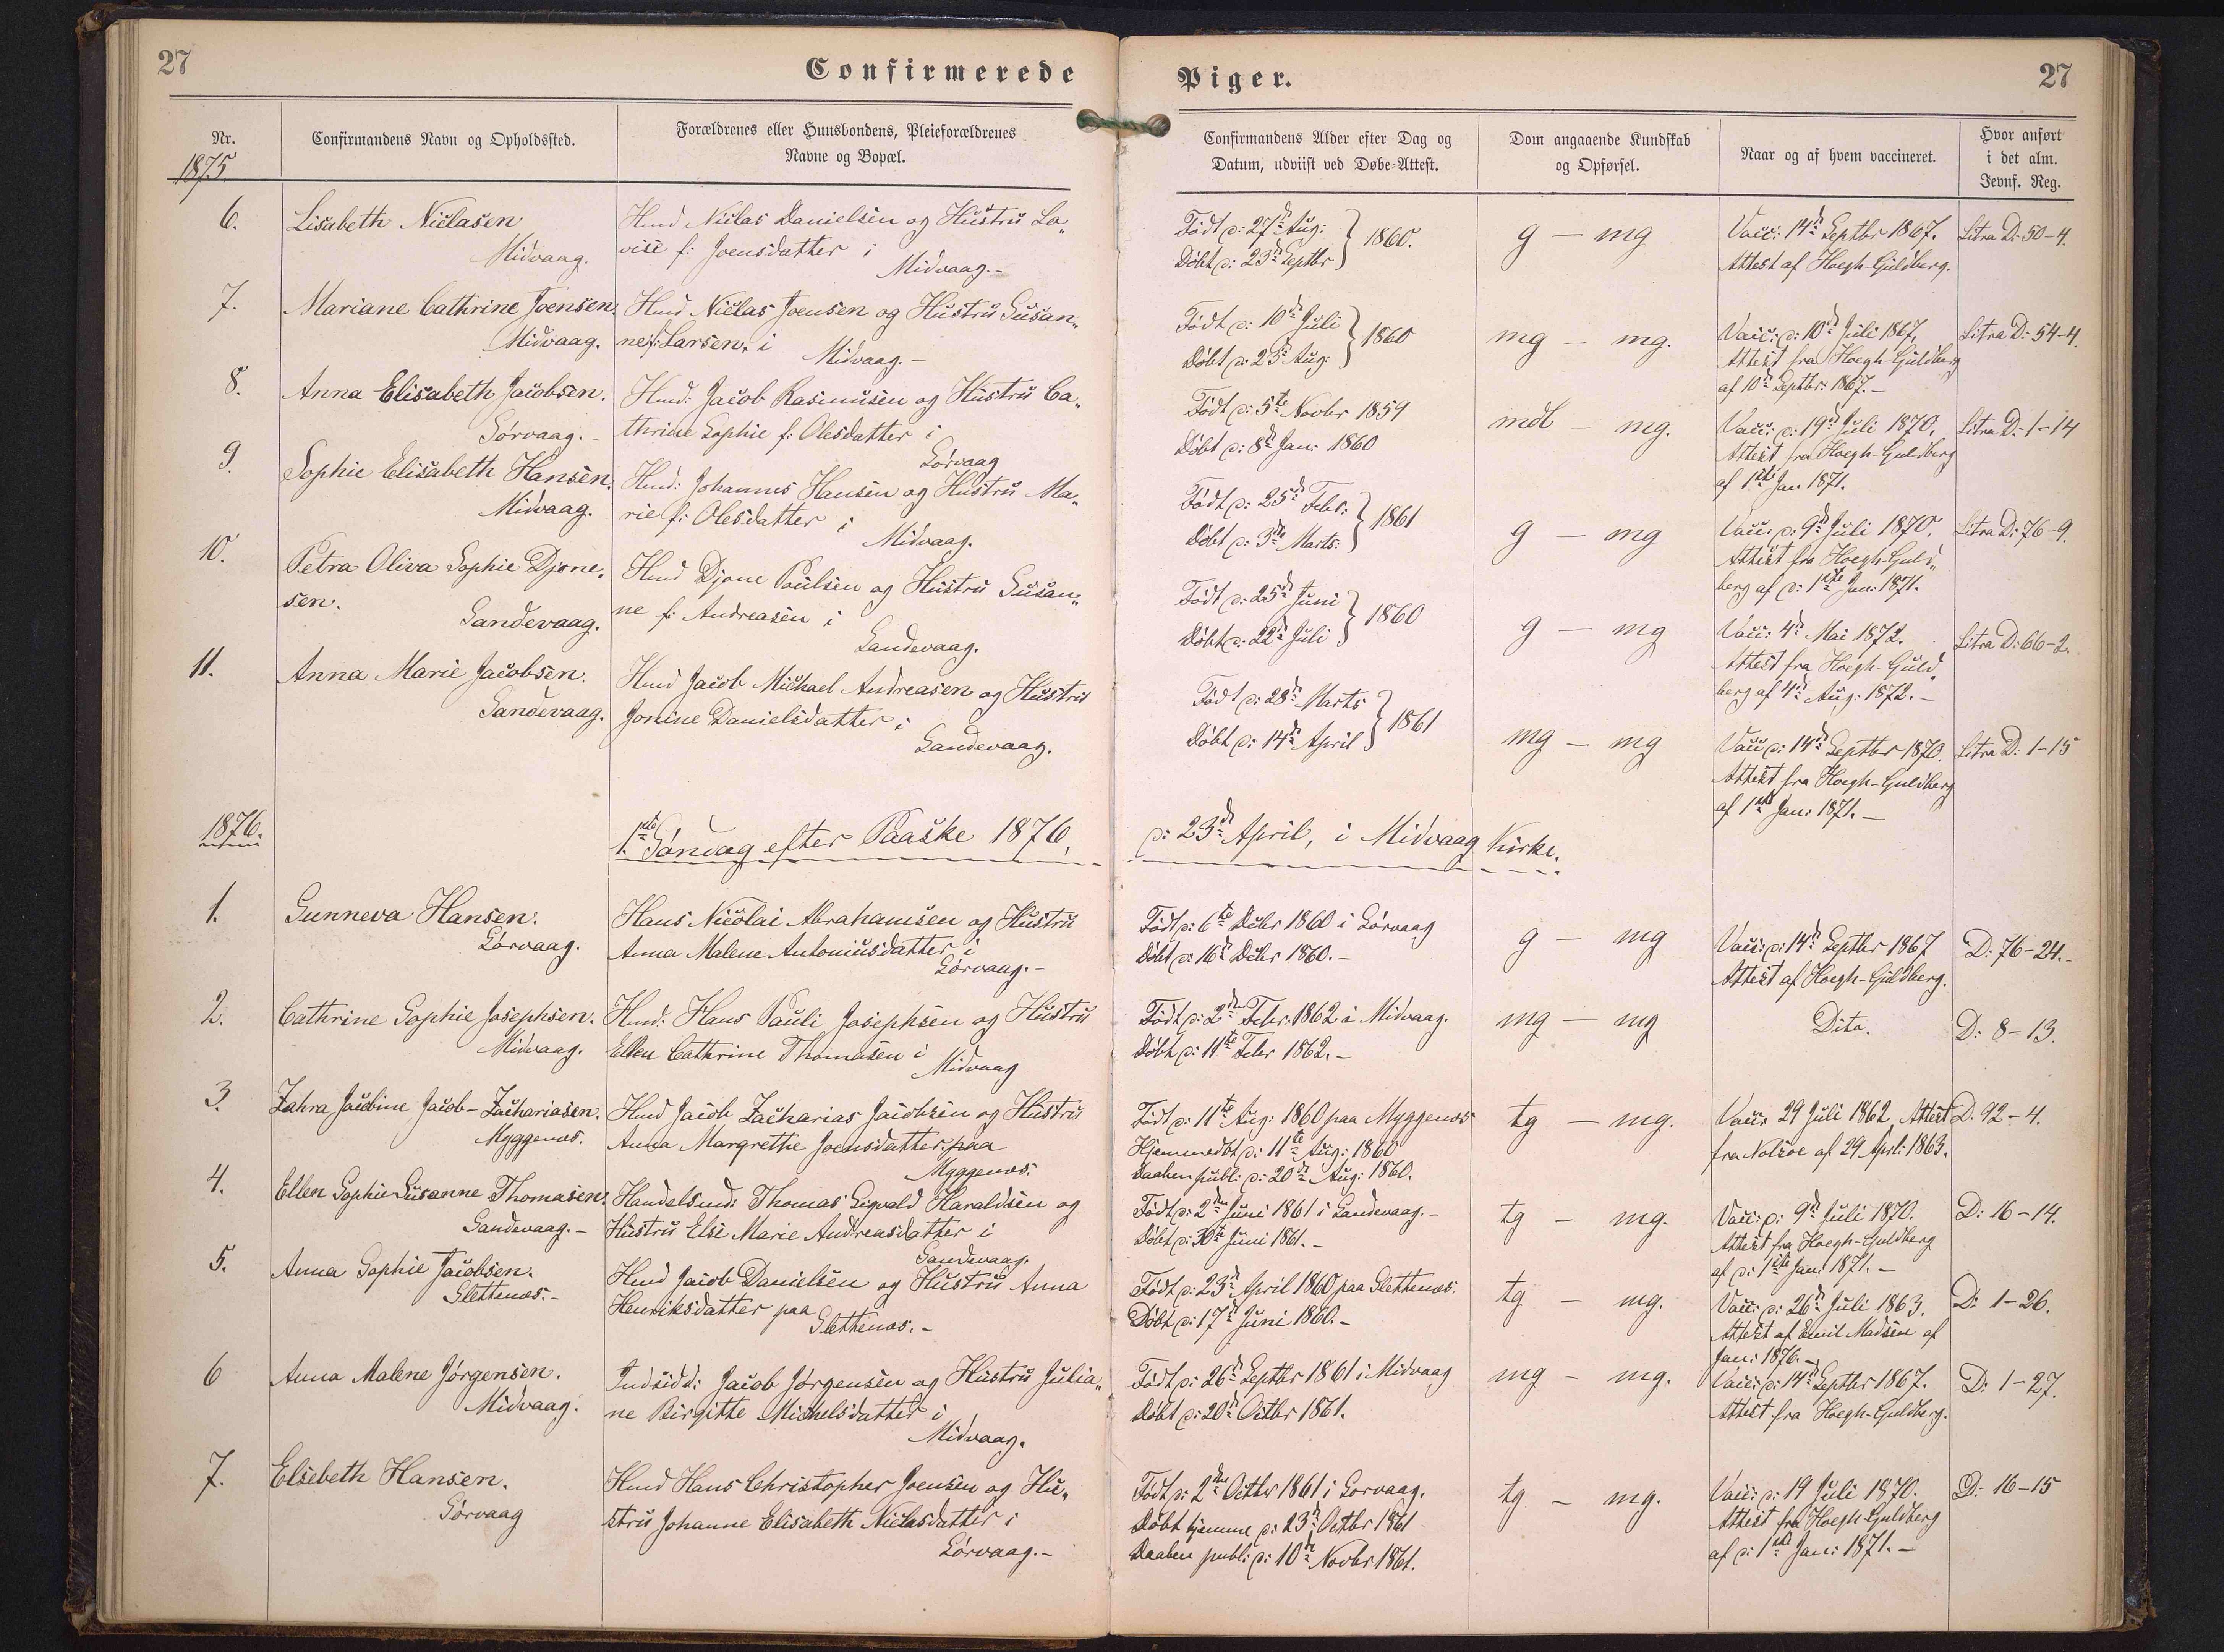 27
Confirmerede
Piger.
27
Nr.
Confirmandens Navn og Opholdssted.
Forældrenes eller Huusbondens, Pleieforældrenes
Navne og Bopæl.
Confirmandens Alder efter Dag og
Datum, udviist ved Døbe-Attest.
Dom angaaende Kundskab
og Opførsel.
Naar og af hvem vaccineret.
Hvor anført
i det alm.
Jevnf. Reg.
1875
6.
Lisabeth Niclasen
Midvaag.
Hmd Niclas Danielsen og Hustru Lo„
vise f: Joensdatter i
Midvaag.-
Født d: 27d Aug:
Døbt d: 23d Septbr
1860.
g - mg
Vacc: 14d Septbr 1867.
Attest af Hoegh-Guldberg.
Litra D: 50-4.
7.
Mariane Cathrine Joensen.
Midvaag.
Hmd Niclas Joensen og Hustru Susan„
ne f: Larsen, i
Midvaag.-
Født d: 10d Juli
Døbt d: 23d Aug:
1860
mg - mg.
Vacc: d: 10d Juli 1867,
Attest fra Hoegh-Guldberg
af 10d Septbr: 1867.-
Litra D: 54-4.
8.
Anna Elisabeth Jacobsen.
Sørvaag.-
Hmd: Jacob Rasmusen og Hustru Ca„
thrine Sophie f: Olesdatter i
Sørvaag
Født d: 5te Novbr 1859
Døbt d: 8d Jan: 1860
mdl - mg.
Vacc: d: 19d Juli 1870,
Attest fra Hoegh-Guldberg
af 1ste Jan 1871.
Litra D: 1-14
9.
Sophie Elisabeth Hansen.
Midvaag.
Hmd: Johannes Hansen og Hustru Ma„
rie f: Olesdatter i
Midvaag.
Født d: 25d Febr:
Døbt d: 3die Marts:
1861
g - mg
Vacc: d: 9d Juli 1870.
Attest fra Hoegh-Guld„
berg af d: 1ste Jan: 1871.
Litra D: 76-9.
10.
Petra Oliva Sophie Djone„
sen.
Sandevaag.
Hmd Djone Poulsen og Hustru Susan„
ne f: Andreasen i
Sandevaag.
Født d: 25d Juni
Døbt d: 22d Juli
1860
g - mg
Vacc: 4d Mai 1872.
Attest fra Hoegh-Guld„
berg af 4d Aug: 1872.-
Litra D: 66-2.
11.
Anna Marie Jacobsen.
Sandevaag.
Hmd Jacob Michael Andreasen og Hustru
Jonine Danielsdatter i
Sandevaag.
Født d: 28d Marts
Døbt d: 14d April
1861
mg - mg
Vacc d: 14d Septbr 1870.
Attest fra Hoegh-Guldberg
af 1ste Jan: 1871.-
Litra D: 1-15
1876.
1ste Søndag efter Paaske 1876,
d: 23d April, i Midvaag Kirke.
1.
Sunneva Hansen.
Sørvaag.
Hans Nicolai Abrahamsen og Hustru
Anna Malene Antoniusdatter i
Sørvaag.-
Født d: 6te Decbr 1860 i Sørvaag
Døbt d: 16d Decbr 1860.-
g - mg
Vacc: d: 14d Septbr 1867
Attest af Hoegh-Guldberg.
D: 76-24.-
2.
Cathrine Sophie Josephsen.
Midvaag.
Hmd: Hans Pauli Josephsen og Hustru
Ellen Cathrine Thomasen i
Midvaag
Født d: 2den Febr: 1862 i Midvaag.
Døbt d: 11te Febr 1862.-
mg - mg
Dito.
D: 8-13.
3.
Zahra Jacobine Jacob-Zachariasen.
Myggenæs.
Hmd Jacob Zacharias Jacobsen og Hustru
Anna Margrethe Joensdatter paa
Myggenæs.
Født d: 11te Aug: 1860 paa Myggenæs
Hjemmedøbt d: 11te Aug: 1860
Daaben publ: d: 20d Aug: 1860.
tg - mg.
Vacc: 29 Juli 1862, Attest
fra Nolsøe af 29 Apri: 1863.
D: 92-4.
4.
Ellen Sophie Susanne Thomasen.
Sandevaag.-
Handelsmd: Thomas Sigvald Haraldsen og
Hustru Else Marie Andreasdatter i
Sandevaag.
Født d: 2den Juni 1861 i Sandevaag.-
Døbt d: 30te Juni 1861.-
tg - mg.
Vacc: d: 9d Juli 1870.
Attest fra Hoegh-Guldberg
af d: 1ste Jan: 1871.-
D: 16-14.
5.
Anna Sophie Jacobsen.
Slettenæs.-
Hmd Jacob Danielsen og Hustru Anna
Henriksdatter paa
Slettenæs.-
Født d: 23d April 1860 paa Slettenæs.
Døbt d: 17d Juni 1860.-
tg - mg.
Vacc: d: 26d Juli 1863.
Attest af Emil Madsen af
Jan: 1876.-
D: 1-26.
6
Anna Malene Jørgensen.
Midvaag.
Indsidd: Jacob Jørgensen og Hustru Julia„
ne Birgitte Michelsdatter i
Midvaag.
Født d: 26d Septbr 1861 i Midvaag
Døbt d: 20d Octbr 1861.
mg - mg.
Vacc: d: 14d Septbr 1867.
Attest fra Hoegh-Guldberg.
D: 1-27.
7.
Elsebeth Hansen.
Sørvaag
Hmd Hans Christopher Joensen og Hu„
stru Johanne Elisabeth Niclasdatter i
Sørvaag.-
Født d: 2den Octbr 1861 i Sørvaag.
Døbt hjemme d: 23d Octbr 1861
Daaben publ: d: 10d Novbr 1861.
tg - mg.
Vacc: d: 19 Juli 1870.
Attest fra Hoegh-Guldberg
af d: 1ste Jan: 1871.-
D: 16-15